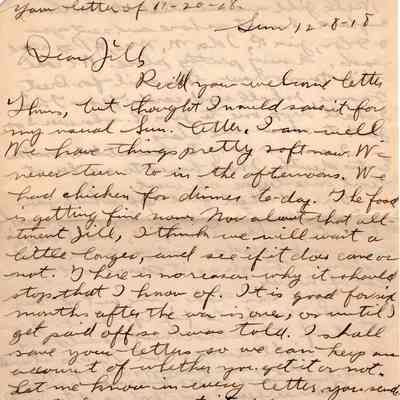 Your letter of 11-20-18.
Sun, 12-8-18
Dear Jill
Rec'd your welcome letter
Thurs, but thought I would save it for
my usual Sun. letter. I am well
We have things pretty soft now. We
never turn to in the afternoons. We
had chicken for dinner to-day. The food
is getting fine now. Now about that all-
otment Jill, I think we will wait a
little longer, and see if it does come or
not. There is no reason why it should
stop that I know of. It is good for six
months after the war is over, or until I
get paid off so I was told. I shall
save your letters so we can keep an
account of whether you get it or not.
Let me know in every letter you send